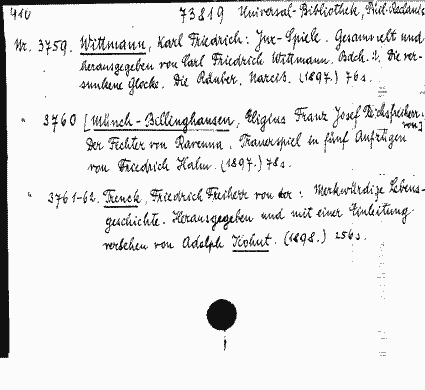 410 73819 Universal-Bibliothek, Phil. Reclams
Nr. 3759. Wittmann, Karl Friedrich: Jux-Spiele. Gesammelt und
herausgegeben von Carl Friedrich Wittmann. Bdch. 1. Die ver-
sunkene Glocke. Die Räuber. Narciß. (1897.) 76 s.
" 3760 [Münch-Bellinghausen, Eligius Franz Josef Reichsfreiherr von]:
Der Fechter von Ravenna. Trauerspiel in fünf Aufzügen
von Friedrich Halm. (1897.) 78 s.
" 3761-62. Trenck, Friedrich Freiherr von der: Merkwürdige Lebens-
geschichte. Herausgegeben und mit einer Einleitung
versehen von Adolph Kohut. (1898.) 256 s.